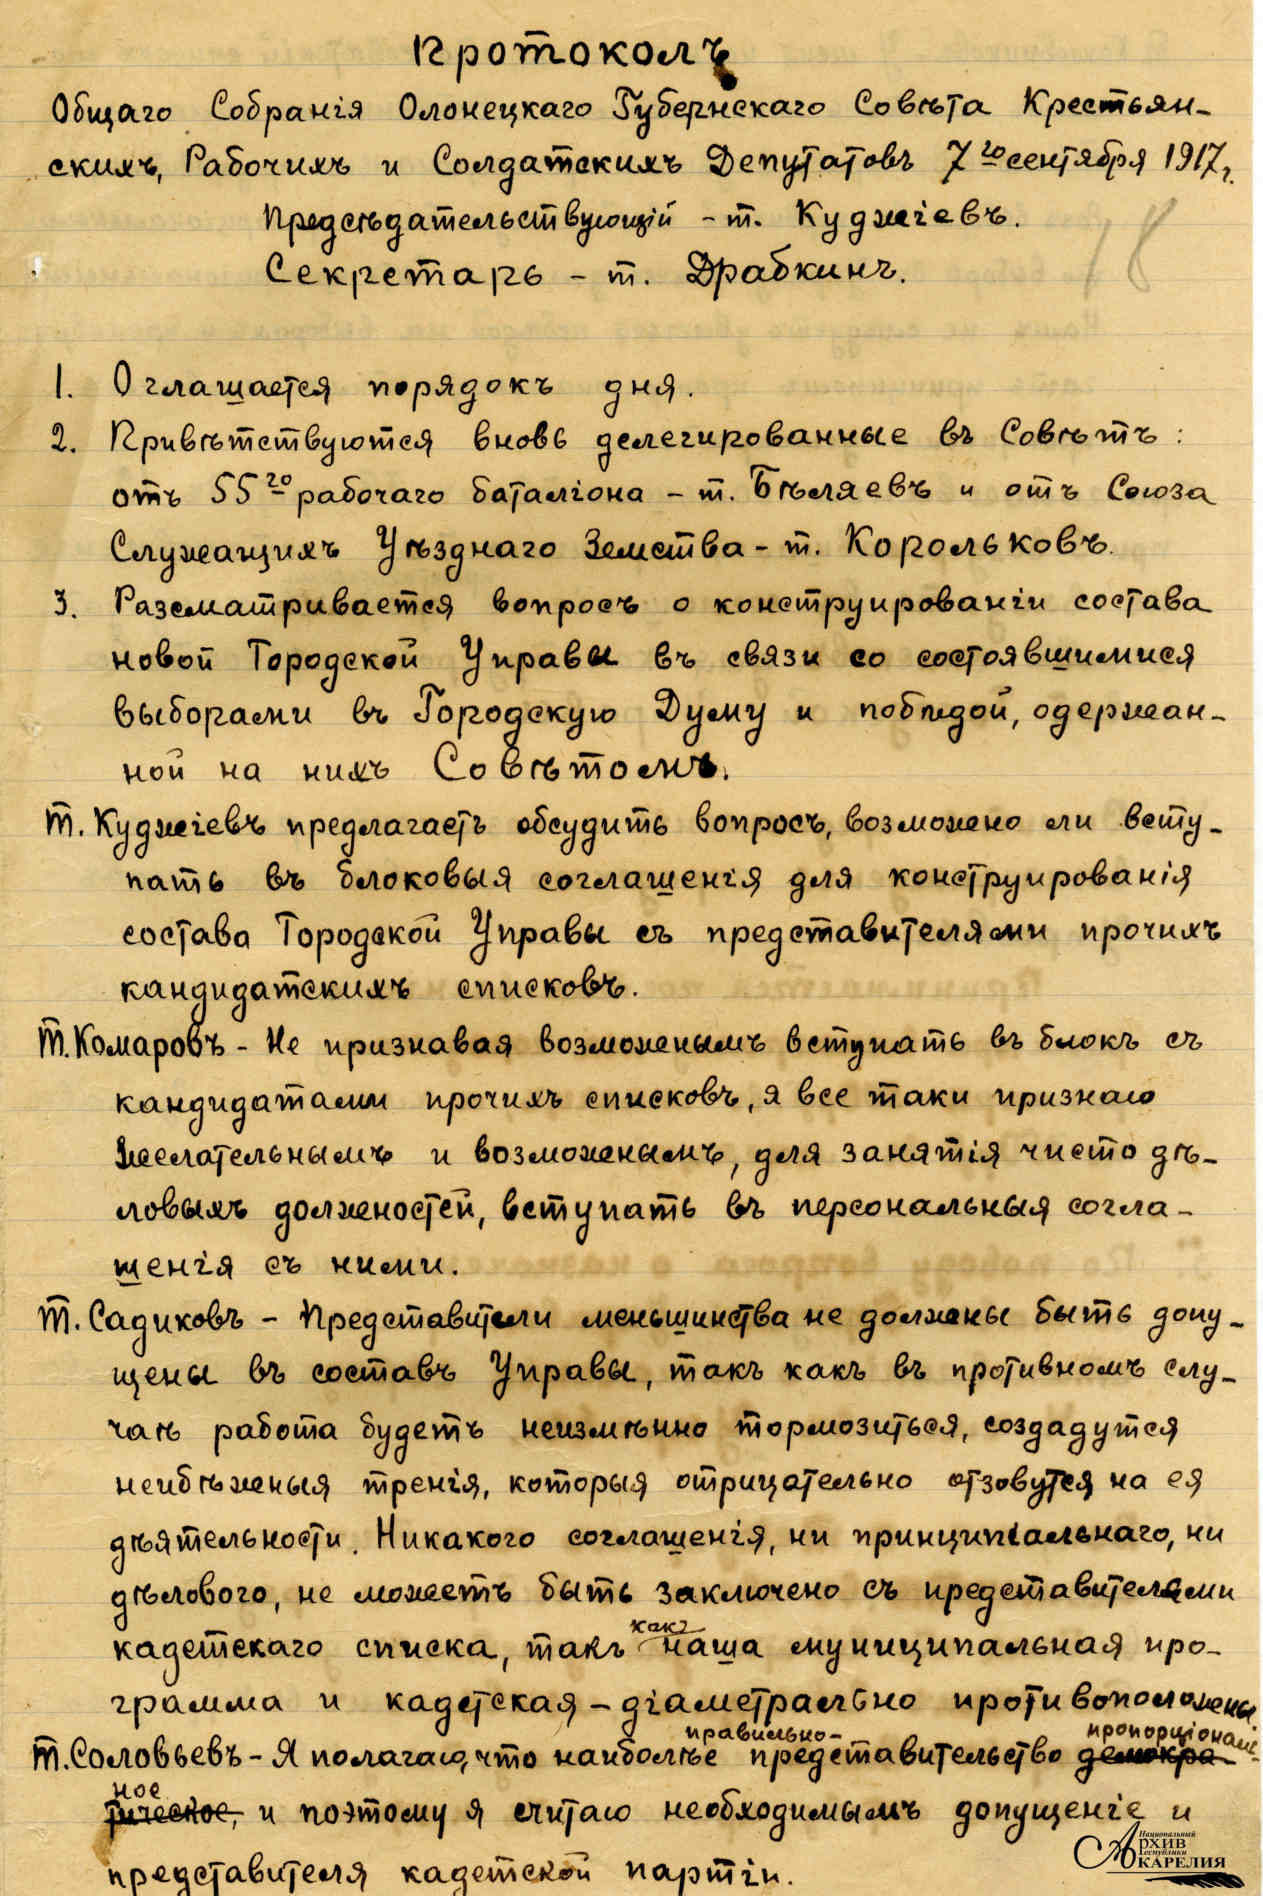 Протоколъ
Общаго Собранія Олонецкаго Губернскаго Совѣта Крестьян-
скихъ, Рабочихъ и Солдатскихъ Депутатовъ 7го сентября 1917г.
Предсѣдательствующій - т. Куджіевъ.
18
Секретарь - т. Драбкинъ.
1. Оглашается порядокъ дня.
2. Привѣтствуются вновь делегированные въ Совѣтъ:
отъ 55го рабочаго баталіона - т. Бѣляевъ и отъ Союза
Служащихъ Уѣзднаго Земства - т. Корольковъ.
3. Разсматривается вопросъ о конструированіи состава
новой Городской Управы въ связи со состоявшимися
выборами въ Городскую Думу и побѣдой, одержан-
ной на нихъ Совѣтомъ.
т. Куджіевъ предлагаетъ обсудить вопросъ, возможно ли всту-
пать въ блоковыя соглашенія для конструированія
состава Городской Управы съ представителями прочихъ
кандидатскихъ списковъ.
т. Комаровъ - Не признавая возможнымъ вступать въ блокъ съ
кандидатами прочихъ списковъ, я все таки признаю
желательнымъ и возможнымъ, для занятія чисто дѣ-
ловыхъ должностей, вступать въ персональныя согла-
шенія съ ними.
т. Садиковъ - Представители меньшинства не должны быть допу-
щены въ составъ Управы, такъ какъ въ противномъ слу-
чаѣ работа будетъ неизмѣнно тормозиться, создадутся
неибѣжныя тренія, которыя отрицательно отзовутся на ея
дѣятельности. Никакого соглашенія, ни принципіальнаго, ни
дѣлового, не можетъ быть заключено съ представителями
кадетскаго списка, такъ какъ наша муниципальная про-
грамма и кадетская - діаметрально противоположны
т. Соловьевъ - Я полагаю, что наиболѣе правильно - представительство демокра- пропорціональ-
тическое, ное и поэтому я считаю необходимымъ допущеніе и
представителя кадетской партіи.
Национальный
АРХИВ
Республики
КАРЕЛИЯ